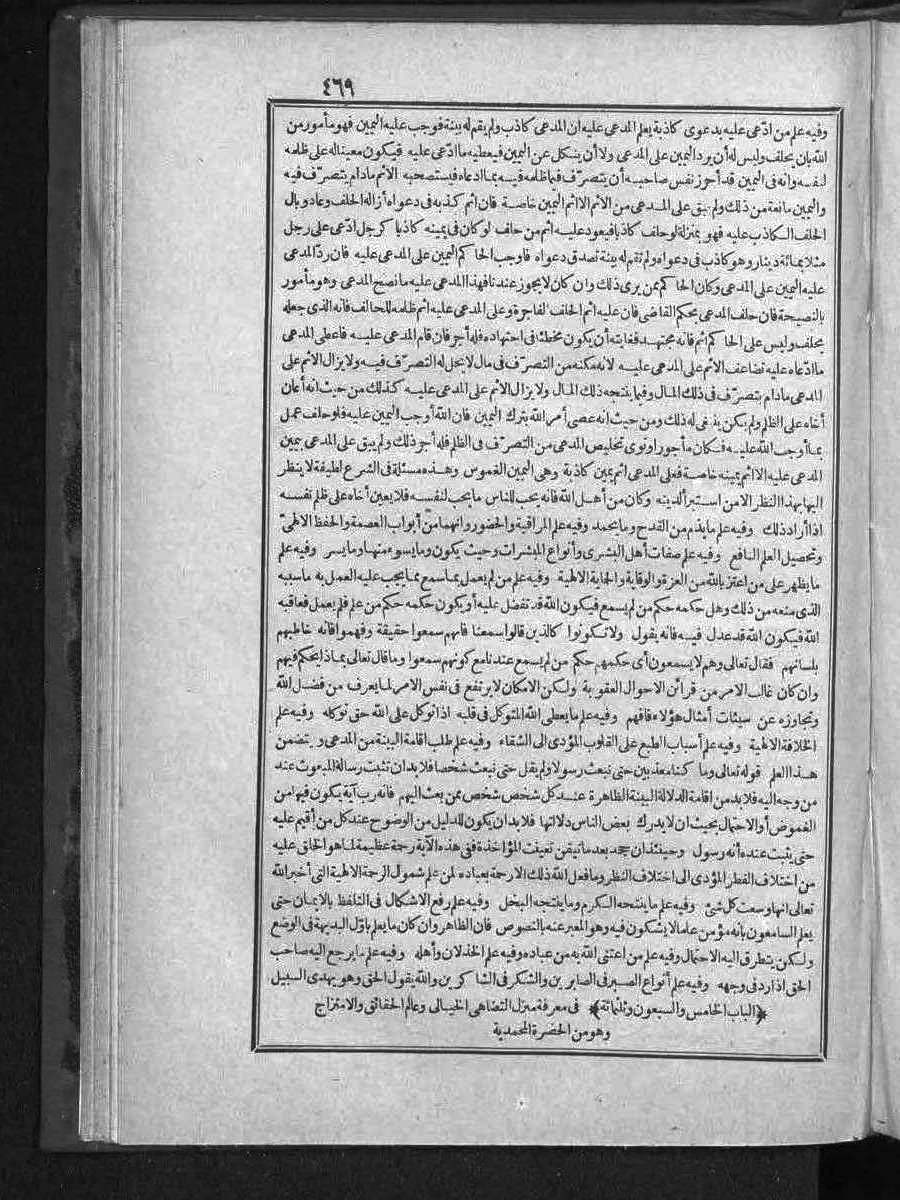 ٤٦٩
وفيه علم من ادّعى عليه بدعوى كاذبة يعلم المدعى عليه ان المدعى كاذب ولم يقم له بينة فوجب عليه اليمين فهو مأمور من
الله بان يحلف وليس له أن يرد اليمين على المدعى ولا أن ينكل عن اليمين فيعطيه ما ادّعى عليه فيكون معينا له على ظلمه
لنفسه وانه فى اليمين قد أحرز نفس صاحبه أن يتصرّف فيما ظلمه فيه بما ادعاه فيستصحبه الاثم ما دام يتصرّف فيه
واليمين مانعة من ذلك ولم يبق على المدعى من الاثم الا اثم اليمين خاصة فان اثم كذبه فى دعواه أزاله الحلف وعاد وبال
الحلف الكاذب عليه فهو بمنزلة لو حلف كاذبا فيعود عليه اثم من حلف لو كان فى يمينه كاذبا كرجل ادّعى على رجل
مثلا بمائة دينار وهو كاذب فى دعواه ولم تقم له بينة تصدق دعواه فاوجب الحاكم اليمين على المدعى عليه فان ردّ المدعى
عليه اليمين على المدعى وكان الحاكم ممن يرى ذلك وان كان لا يجوز عندنا فهذا المدعى عليه ما نصح المدعى وهو مأمور
بالنصيحة فان حلف المدعى بحكم القاضى فان عليه اثم الحلف الفاجرة وعلى المدعى عليه اثم ظلمه للحالف فانه الذى جعله
يحلف وليس على الحاكم اثم فانه مجتهد فغايته أن يكون مخطئا فى اجتهاده فله أجر فان قام المدعى عليه فاعطى المدعى
ما ادّعاه عليه تضاعف الاثم على المدعى عليه لانه مكنه من التصرّف فى مال لا يحل له التصرّف فيه ولا يزال الاثم على
المدعى ما دام يتصرّف فى ذلك المال وفيما ينتجه ذلك المال ولا يزال الاثم على المدعى عليه كذلك من حيث انه أعان
أخاه على الظلم ولم يكن ينبغى له ذلك ومن حيث انه عصى أمر الله بترك اليمين فان الله أوجب اليمين عليه فلو حلف عمل
بما أوجب الله عليه فكان مأجورا ونوى تخليص المدعى من التصرّف فى الظلم فله أجر ذلك ولم يبق على المدعى بيمين
المدعى عليه الا اثم يمينه خاصة فعلى المدعى اثم يمين كاذبة وهى اليمين الغموس وهذه مسئلة فى الشرع لطيفة لا ينظر
اليها بهذا النظر الا من استبرأ لدينه وكان من أهل الله فانه يحب للناس ما يحب لنفسه فلا يعين أخاه على ظلم نفسه
اذا أراد ذلك وفيه علم ما يذم من القدح وما يحمد وفيه علم المراقبة والحضور وانهما من أبواب العصمة والحفظ الالهىّ
وتحصيل العلم النافع وفيه علم صفات أهل البشرى وأنواع المبشرات وحيث يكون وما يسوء منها وما يسر وفيه علم
ما يظهر على من اعتز بالله من العزة والوقاية والحماية الالهية وفيه علم من لم يعمل بما سمع مما يجب عليه العمل به ما سببه
الذى منعه من ذلك وهل حكمه حكم من لم يسمع فيكون الله قد تفضل عليه أو يكون حكمه حكم من علم فلم يعمل فعاقبه
الله فيكون الله قد عدل فيه فانه يقول ولا تكونوا كالذين قالوا سمعنا فانهم سمعوا حقيقة وفهموا فانه خاطبهم
بلسانهم فقال تعالى وهم لا يسمعون أى حكمهم حكم من لم يسمع عندنا مع كونهم سمعوا وما قال تعالى بماذا يحكم فيهم
وان كان غالب الامر من قرائن الاحوال العقوبة ولكن الامكان لا يرتفع فى نفس الامر لما يعرف من فضل الله
وتجاوزه عن سيئات أمثال هؤلاء فافهم وفيه علم ما يعطى الله المتوكل فى قلبه اذا توكل على الله حق توكله وفيه علم
الخلافة الالهية وفيه علم أسباب الطبع على القلوب المؤدى الى الشقاء وفيه علم طلب اقامة البينة من المدعى ويتضمن
هذا العلم قوله تعالى وما كنا معذبين حتى نبعث رسولا ولم يقل حتى نبعث شخصا فلا بد ان تثبت رسالة المبعوث عند
من وجه اليه فلا بد من اقامة الدلالة البينة الظاهرة عند كل شخص شخص ممن بعث اليهم فانه رب آية يكون فيها من
الغموض أو الاحتمال بحيث ان لا يدرك بعض الناس دلالتها فلا بد ان يكون للدليل من الوضوح عند كل من أقيم عليه
حتى يثبت عنده أنه رسول وحينئذ ان جحد بعد ما تيقن تعينت المؤاخذة ففى هذه الآية رحمة عظيمة لما هو الخلق عليه
من اختلاف الفطر المؤدى الى اختلاف النظر وما فعل الله ذلك الا رحمة بعباده لمن علم شمول الرحمة الالهية التى أخبر الله
تعالى انها وسعت كل شئ وفيه علم ما ينتجه الكرم وما ينتجه البخل وفيه علم رفع الاشكال فى التلفظ بالايمان حتى
يعلم السامعون بأنه مؤمن علما لا يشكون فيه وهو المعبر عنه بالنصوص فان الظاهر وان كان ما يعلم بأوّل البديهة فى الوضع
ولكن يتطرق اليه الاحتمال وفيه علم من اعتنى الله به من عباده وفيه علم الخذلان وأهله وفيه علم ما يرجع اليه صاحب
الحق اذا رد فى وجهه وفيه علم أنواع الصبر فى الصابرين والشكر فى الشاكرين والله يقول الحق وهو يهدى السبيل
﴿الباب الخامس والسبعون وثلثمائة﴾ فى معرفة منزل التضاهى الخيالى وعالم الحقائق والامتزاج
وهو من الحضرة المحمدية